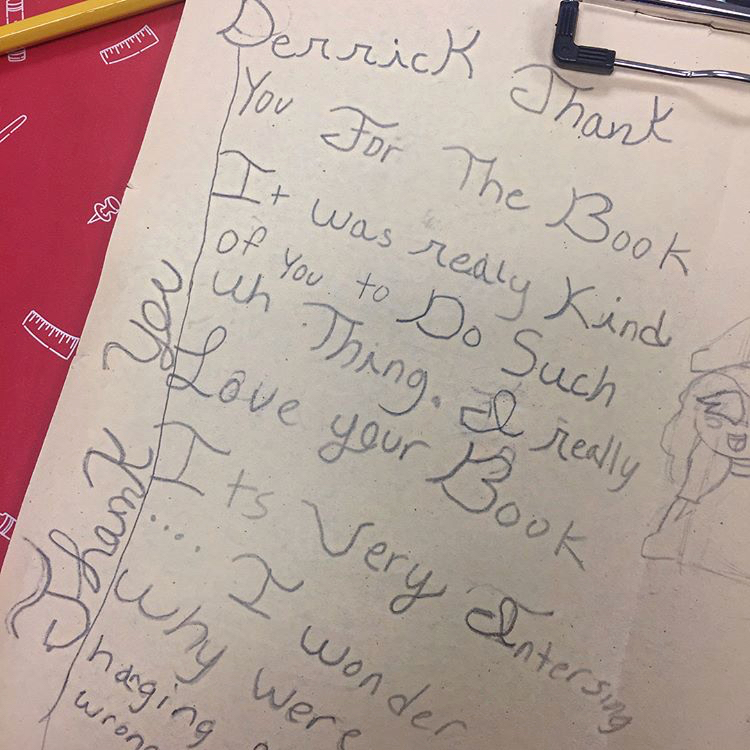 Derrick Thank
You For The Book
It was realy Kind
of You to Do Such
uh Thing. I really
Love your Book
Its Very Intersing
.... I wonder
Why were
haging
wrong
Thank You